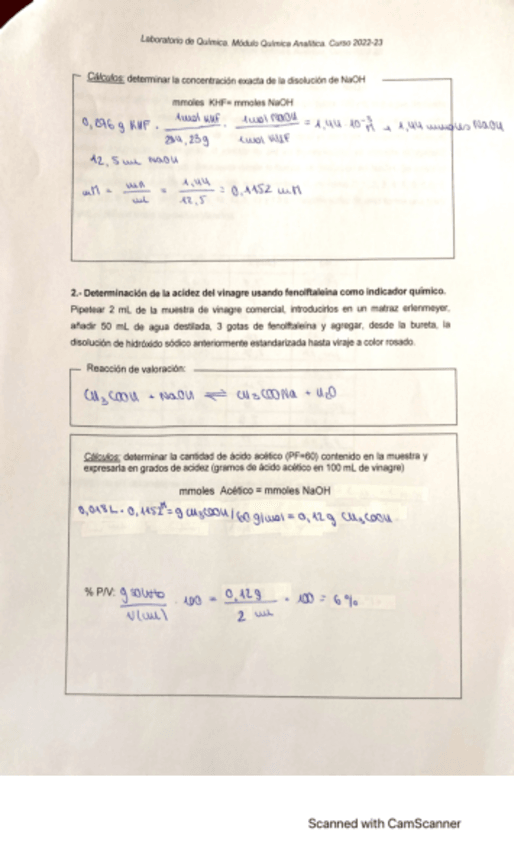 Laboratorio de Química. Módulo Química Analítica. Curso 2022-23
Cálculos: determinar la concentración exacta de la disolución de NaOH
mmoles KHF= mmoles NaOH
1mol KHF 1mol NaOH
0,096 g KHF · ——— · ——— = 1,44 · 10⁻³ → 1,44 mmoles NaOH
204,23g 1mol KHF
12,5 mL NaOH
mM = mn/mL = 1,44/12,5 = 0,1152 mM
2.- Determinación de la acidez del vinagre usando fenolftaleína como indicador químico.
Pipetear 2 mL de la muestra de vinagre comercial, introducirlos en un matraz erlenmeyer,
añadir 50 mL de agua destilada, 3 gotas de fenolftaleína y agregar, desde la bureta, la
disolución de hidróxido sódico anteriormente estandarizada hasta viraje a color rosado.
Reacción de valoración:
CH₃COOH + NaOH ⇌ CH₃COONa + H₂O
Cálculos: determinar la cantidad de ácido acético (PF=60) contenido en la muestra y
expresarla en grados de acidez (gramos de ácido acético en 100 mL de vinagre)
mmoles Acético = mmoles NaOH
0,018L · 0,1152ᴹ = g CH₃COOH/60 g/mol = 0,12g CH₃COOH
% P/V: g soluto/V(mL) · 100 = 0,12g/2 mL · 100 = 6%
Scanned with CamScanner